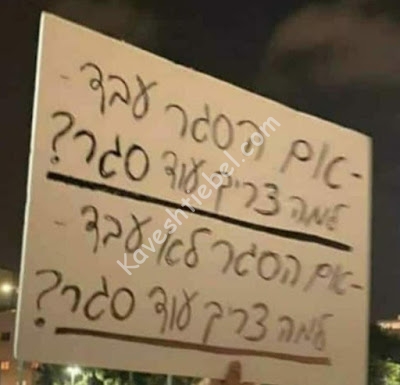 -אם הסגר עבד-
למה צריך עוד סגר?
-אם הסגר לא עבד-
למה צריך עוד סגר?
Kaveshtiebel.com